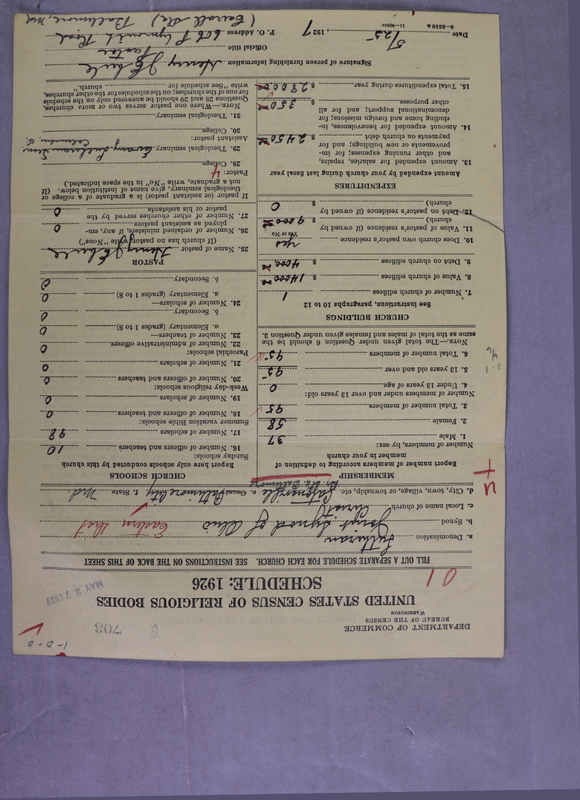 1-0-0
DEPARTMENT OF COMMERCE
BUREAU OF THE CENSUS
WASHINGTON
703
UNITED STATES CENSUS OF RELIGIOUS BODIES
SCHEDULE: 1926
MAY 27 1927
FILL OUT A SEPARATE SCHEDULE FOR EACH CHURCH. SEE INSTRUCTIONS ON THE BACK OF THIS SHEET
a. Denomination Lutheran
b. Synod Joint Synod of Ohio Eastern Dist
c. Local name of church Christ
d. City, town, village, or township, etc. Gatesville e. County Baltimore City f. State Md.
MEMBERSHIP
Report number of members according to definition of member in your church
Number of members, by sex:
1. Male 37
2. Female 58
3. Total number of members 95
Number of members under and over 13 years old:
4. Under 13 years of age 0
5. 13 years old and over 95
6. Total number of members 95
NOTE.—The total given under Question 6 should be the same as the total of males and females given under Question 3.
CHURCH BUILDINGS
See instructions, paragraphs 10 to 12
7. Number of church edifices 1
8. Value of church edifices $ 14000
9. Debt on church edifices $ 4000
10. Does church own pastor's residence yes
Yes or No
11. Value of pastor's residence (if owned by church) $ 9000
12. Debt on pastor's residence (if owned by church) $ 0
EXPENDITURES
Amount expended by your church during last fiscal year
13. Amount expended for salaries, repairs, and other running expenses; for improvements or new buildings; and for payments on church debt $ 2450
14. Amount expended for benevolences, including home and foreign missions; for denominational support; and for all other purposes $ 350
15. Total expenditures during year $ 2900
CHURCH SCHOOLS
Report here only schools conducted by this church
Sunday schools:
16. Number of officers and teachers 10
17. Number of scholars 98
Summer vacation Bible schools:
18. Number of officers and teachers 0
19. Number of scholars 0
Week-day religious schools:
20. Number of officers and teachers 0
21. Number of scholars 0
Parochial schools:
22. Number of administrative officers 0
23. Number of teachers—
a. Elementary (grades 1 to 8) 0
b. Secondary 0
24. Number of scholars—
a. Elementary (grades 1 to 8) 0
b. Secondary 0
PASTOR
25. Name of pastor Henry J
(If church has no pastor, write "None")
26. Number of ordained ministers, if any, employed as assistant pastors 0
27. Number of other churches served by the pastor or his assistants 0
If pastor (or assistant pastor) is a graduate of a college or theological seminary, give name of institution below. (If not a graduate, write "No" in the space indicated.)
Pastor: 4
28. College
29. Theological seminary
Assistant pastor:
30. College
31. Theological seminary
NOTE.—Where pastors serve two or more churches, Questions 28 and 29 should be answered only on the schedule for one of the churches; on schedules for the other churches, write "See schedule for church."
Signature of person furnishing information Henry J
Official title Pastor
Date 5/25, 1927 P. O. Address 606 Plymouth Road
(Carroll Sta) Baltimore, Md